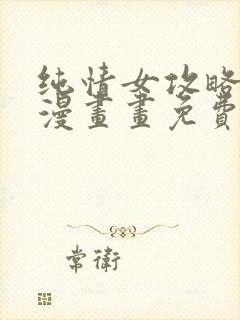 纯情女攻略
漫畫畫免費
常衛